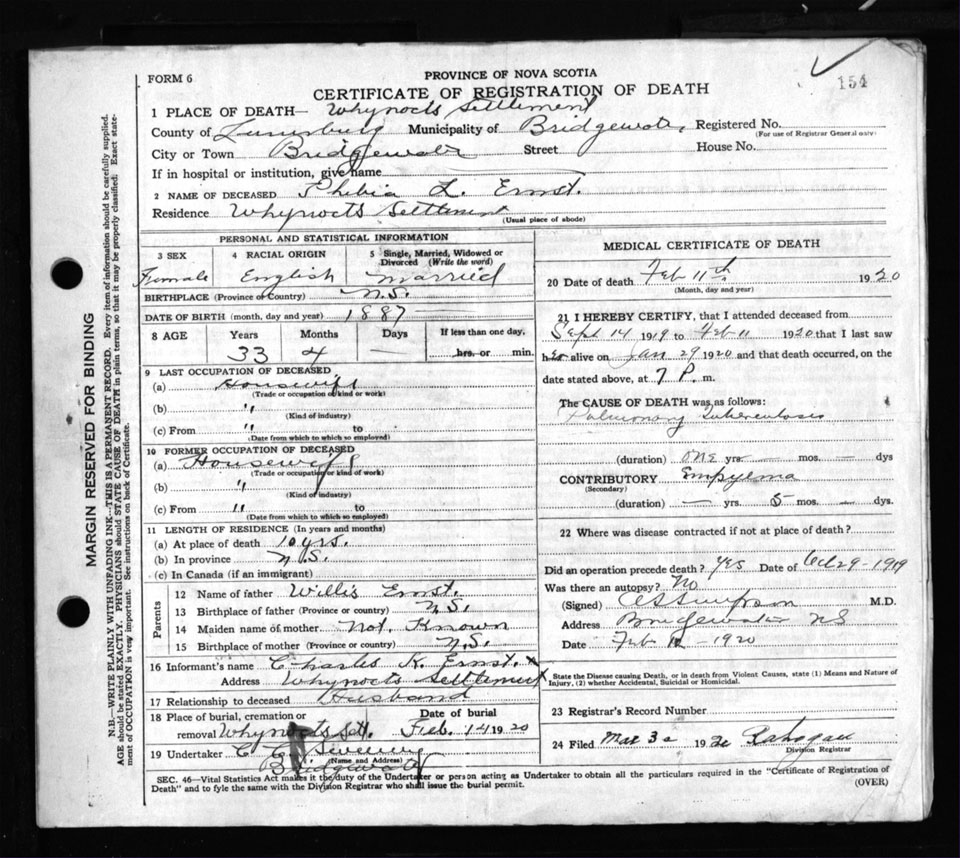 FORM 6
PROVINCE OF NOVA SCOTIA
154
CERTIFICATE OF REGISTRATION OF DEATH
1 PLACE OF DEATH— Whynocts Settlement
County of Lunenburg Municipality of Bridgewater Registered No.
(For use of Registrar General only)
City or Town Bridgewater Street House No.
If in hospital or institution, give name
2 NAME OF DECEASED Phebia L. Ernst.
Residence Whynocts Settlement
(Usual place of abode)
PERSONAL AND STATISTICAL INFORMATION
3 SEX 4 RACIAL ORIGIN 5 Single, Married, Widowed or Divorced (Write the word)
Female English Married
BIRTHPLACE (Province or Country) N.S.
DATE OF BIRTH (month, day and year) 1887
8 AGE Years Months Days If less than one day,
33 4 — hrs. or min.
9 LAST OCCUPATION OF DECEASED
(a) Housewife
(Trade or occupation of kind or work)
(b) "
(Kind of industry)
(c) From " to
(Date from which to which so employed)
10 FORMER OCCUPATION OF DECEASED
(a) Housewife
(Trade or occupation or kind of work)
(b) "
(Kind of industry)
(c) From " to
(Date from which to which so employed)
11 LENGTH OF RESIDENCE (In years and months)
(a) At place of death 10 yrs.
(b) In province N.S.
(c) In Canada (if an immigrant)
Parents
12 Name of father Willis Ernst.
13 Birthplace of father (Province or country) N.S.
14 Maiden name of mother Not Known
15 Birthplace of mother (Province or country) N.S.
16 Informant's name Charles K. Ernst.
Address Whynocts Settlement
17 Relationship to deceased Husband
18 Place of burial, cremation or removal Whynocts Set. Date of burial Feb. 14 1920
19 Undertaker C. C. Sweeney
(Name and Address)
Bridgewater
MEDICAL CERTIFICATE OF DEATH
20 Date of death Feb 11th 1920
(Month, day and year)
21 I HEREBY CERTIFY, that I attended deceased from
Sept 14 1919 to Feb 11 1920 that I last saw
her alive on Jan 29 1920 and that death occurred, on the
date stated above, at 7 P. m.
The CAUSE OF DEATH was as follows:
Pulmonary Tuberculosis
(duration) one yrs. — mos. — dys
CONTRIBUTORY Empyema
(Secondary)
(duration) — yrs. 5 mos. — dys.
22 Where was disease contracted if not at place of death?
Did an operation precede death? yes Date of Oct 29-1919
Was there an autopsy? No
(Signed) M.D.
Address Bridgewater NS
Date Feb 1920
State the Disease causing Death, or in death from Violent Causes, state (1) Means and Nature of Injury, (2) whether Accidental, Suicidal or Homicidal.
23 Registrar's Record Number
24 Filed Mar 3 192
Division Registrar
SEC. 46—Vital Statistics Act makes it the duty of the Undertaker or person acting as Undertaker to obtain all the particulars required in the "Certificate of Registration of
Death" and to fyle the same with the Division Registrar who shall issue the burial permit. (OVER)
MARGIN RESERVED FOR BINDING
N.B.—WRITE PLAINLY WITH UNFADING INK—THIS IS A PERMANENT RECORD. Every item of information should be carefully supplied.
AGE should be stated EXACTLY. PHYSICIANS should STATE CAUSE OF DEATH in plain terms, so that it may be properly classified. Exact statement of OCCUPATION is very important. See instructions on back of Certificate.